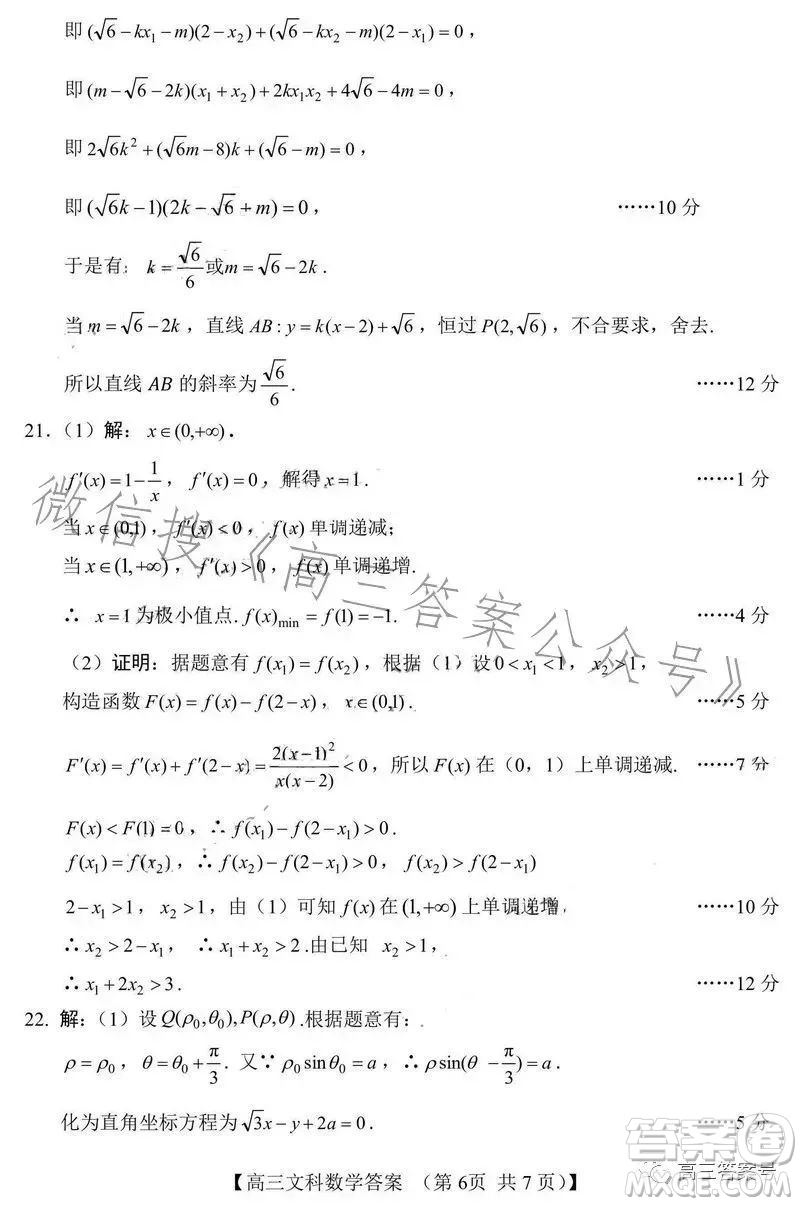 即(√6-kx₁-m)(2-x₂)+(√6-kx₂-m)(2-x₁)=0，
即(m-√6-2k)(x₁+x₂)+2kx₁x₂+4√6-4m=0，
即2√6k²+(√6m-8)k+(√6-m)=0，
即(√6k-1)(2k-√6+m)=0， ……10 分
于是有：k=√6/6或m=√6-2k．
当m=√6-2k，直线 AB：y=k(x-2)+√6，恒过P(2,√6)，不合要求，舍去.
所以直线 AB 的斜率为√6/6． ……12 分
21.（1）解：x∈(0,+∞)．
f′(x)=1-1/x，f′(x)=0，解得x=1． ……1 分
当x∈(0,1)，f′(x)<0，f(x)单调递减；
当x∈(1,+∞)，f′(x)>0，f(x)单调递增.
∴ x=1为极小值点.f(x)min=f(1)=-1. ……4 分
（2）证明：据题意有f(x₁)=f(x₂)，根据（1）设0<x₁<1，x₂>1，
构造函数F(x)=f(x)-f(2-x)，x∈(0,1)． ……5 分
F′(x)=f′(x)+f′(2-x)=2(x-1)²/x(x-2)<0，所以F(x)在（0，1）上单调递减. ……7 分
F(x)<F(1)=0，∴f(x₁)-f(2-x₁)>0．
f(x₁)=f(x₂)，∴f(x₂)-f(2-x₁)>0，f(x₂)>f(2-x₁)
2-x₁>1，x₂>1，由（1）可知f(x)在(1,+∞)上单调递增， ……10 分
∴x₂>2-x₁， ∴x₁+x₂>2.由已知 x₂>1，
∴x₁+2x₂>3. ……12 分
22. 解：（1）设Q(ρ₀,θ₀),P(ρ,θ).根据题意有：
ρ=ρ₀，θ=θ₀+π/3．又∵ρ₀sinθ₀=a，∴ρsin(θ-π/3)=a．
化为直角坐标方程为√3x-y+2a=0． ……5 分
【高三文科数学答案 （第 6页 共 7 页）】
微信搜《高三答案公众号》
高三答案号
答案圈
MXQE.COM